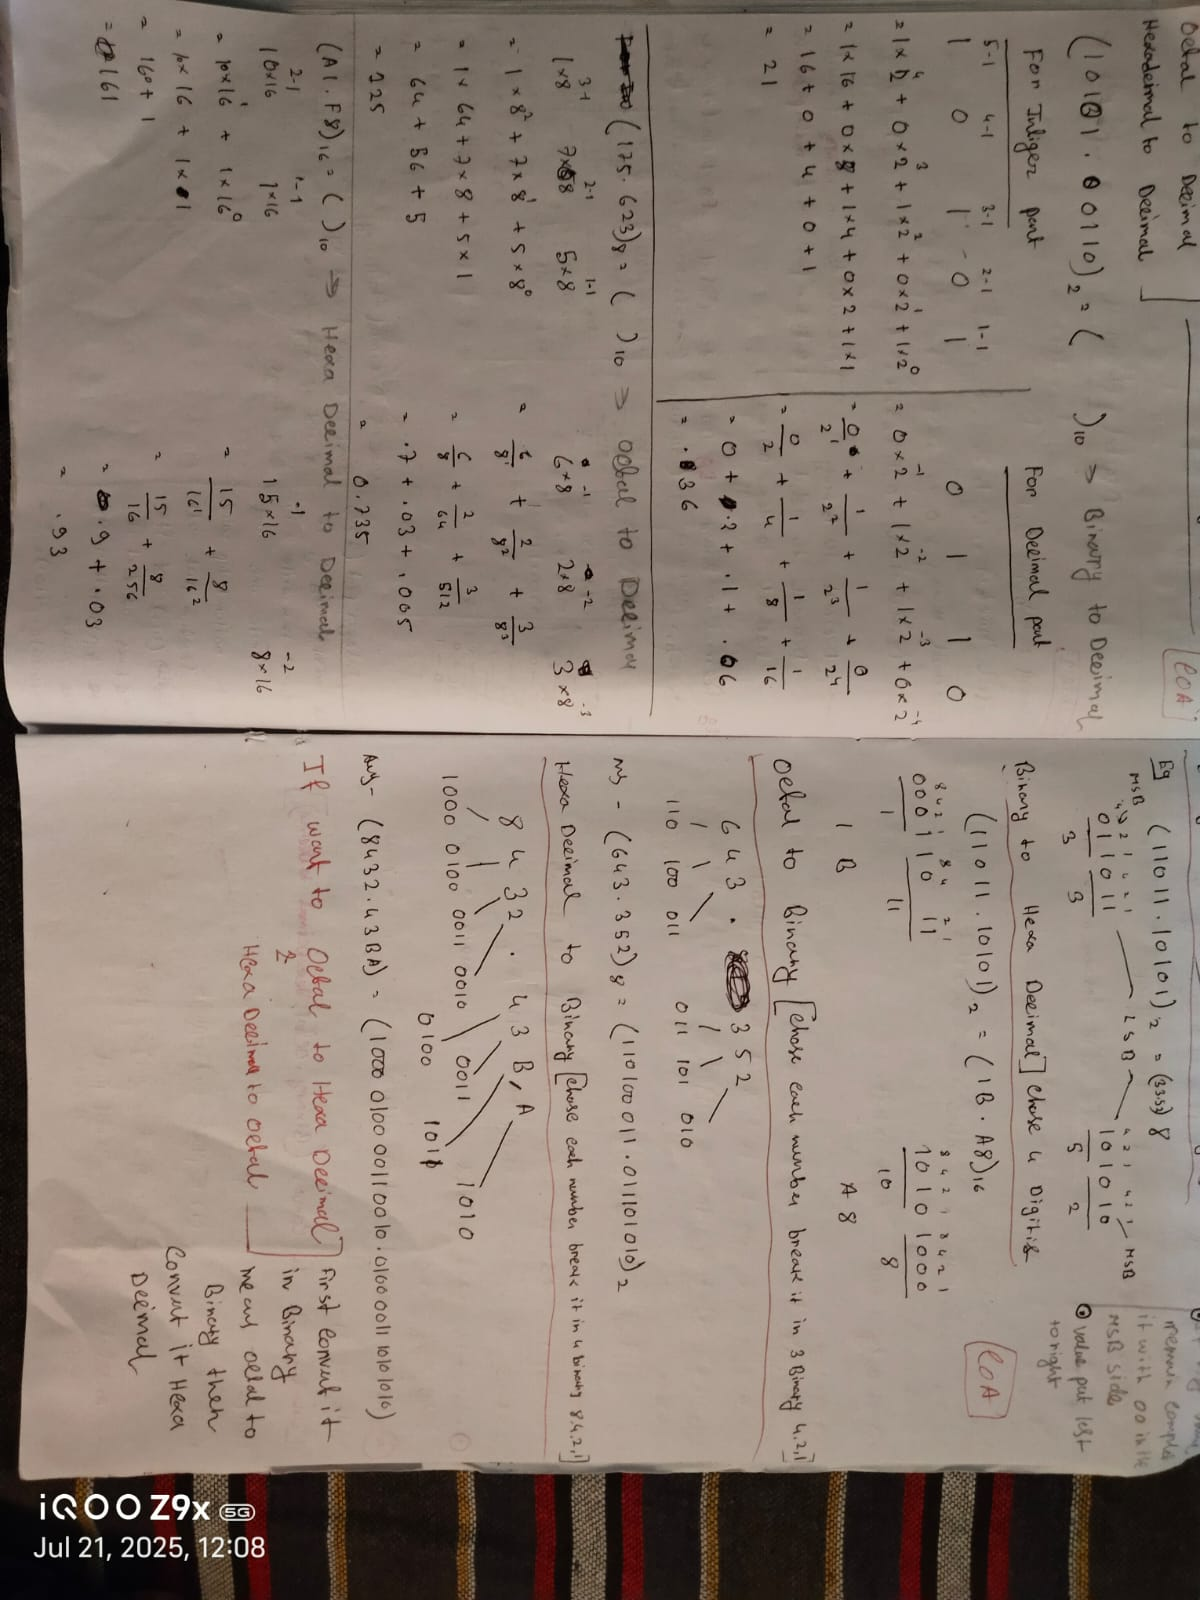 Octal to Decimal
Hexadeimal to Decimal
COA
(10101.00110)₂ = ( )₁₀ → Binary to Decimal
For Intiger part
5-1 4-1 3-1 2-1 1-1
1 0 1 0 1
= 1×2⁴ + 0×2³ + 1×2² + 0×2¹ + 1×2⁰
= 1×16 + 0×8 + 1×4 + 0×2 + 1×1
= 16 + 0 + 4 + 0 + 1
= 21
For Decimal part
0 1 1 0
= 0×2⁻¹ + 1×2⁻² + 1×2⁻³ + 0×2⁻⁴
= 0/2¹ + 1/2² + 1/2³ + 0/24
= 0/2 + 1/4 + 1/8 + 1/16
= 0 + .2 + .1 + .06
= .36
(175.623)₈ = ( )₁₀ → octal to Decimal
1×8³⁻¹ 7×8²⁻¹ 5×8¹⁻¹
= 1×8² + 7×8¹ + 5×8⁰
= 1×64 + 7×8 + 5×1
= 64 + 56 + 5
= 225
6×8⁻¹ 2×8⁻² 3×8⁻³
= 6/8¹ + 2/8² + 3/8³
= 6/8 + 2/64 + 3/512
= .7 + .03 + .005
= 0.735
(A1.F8)₁₆ = ( )₁₀ → Hexa Decimal to Decimal
10×16²⁻¹ 1×16¹⁻¹
= 10×16¹ + 1×16⁰
= 10×16 + 1×1
= 160 + 1
= 161
15×16⁻¹ 8×16⁻²
= 15/16¹ + 8/16²
= 15/16 + 8/256
= .9 + .03
= .93
Eg (11011.10101)₂ = (33.52)8
MSB 4 2 1 4 2 1 LSB 4 2 1 4 2 1 MSB
011011 101010
3 3 5 2
it with 00 in the
MSB side
value put left
to right
Binary to Hexa Decimal] chose 4 Digitis
(11011.10101)₂ = (1B.A8)₁₆
COA
8 4 2 1 8 4 2 1 8 4 2 1 8 4 2 1
0001 1011 1010 1000
1 11 10 8
1 B A 8
Octal to Binary [chose each number break it in 3 Binary 4.2.1]
643 . 352
110 100 011 011 101 010
Ans - (643.352)8 = (110100011.011101010)₂
Hexa Decimal to Binary [chose each number break it in 4 binary 8.4.2.1]
8 4 3 2 . 4 3 B, A
1000 0100 0011 0010 0011 1010
0100 1011
Ans - (8432.43BA) = (1000 0100 0011 0010.0100 0011 1011 1010)
If want to Octal to Hexa Decimal] First convert it
2 in Binary
Hexa Decimal to octal means octal to
Binary then
Convert it Hexa
Decimal
iQOO Z9x 5G
Jul 21, 2025, 12:08